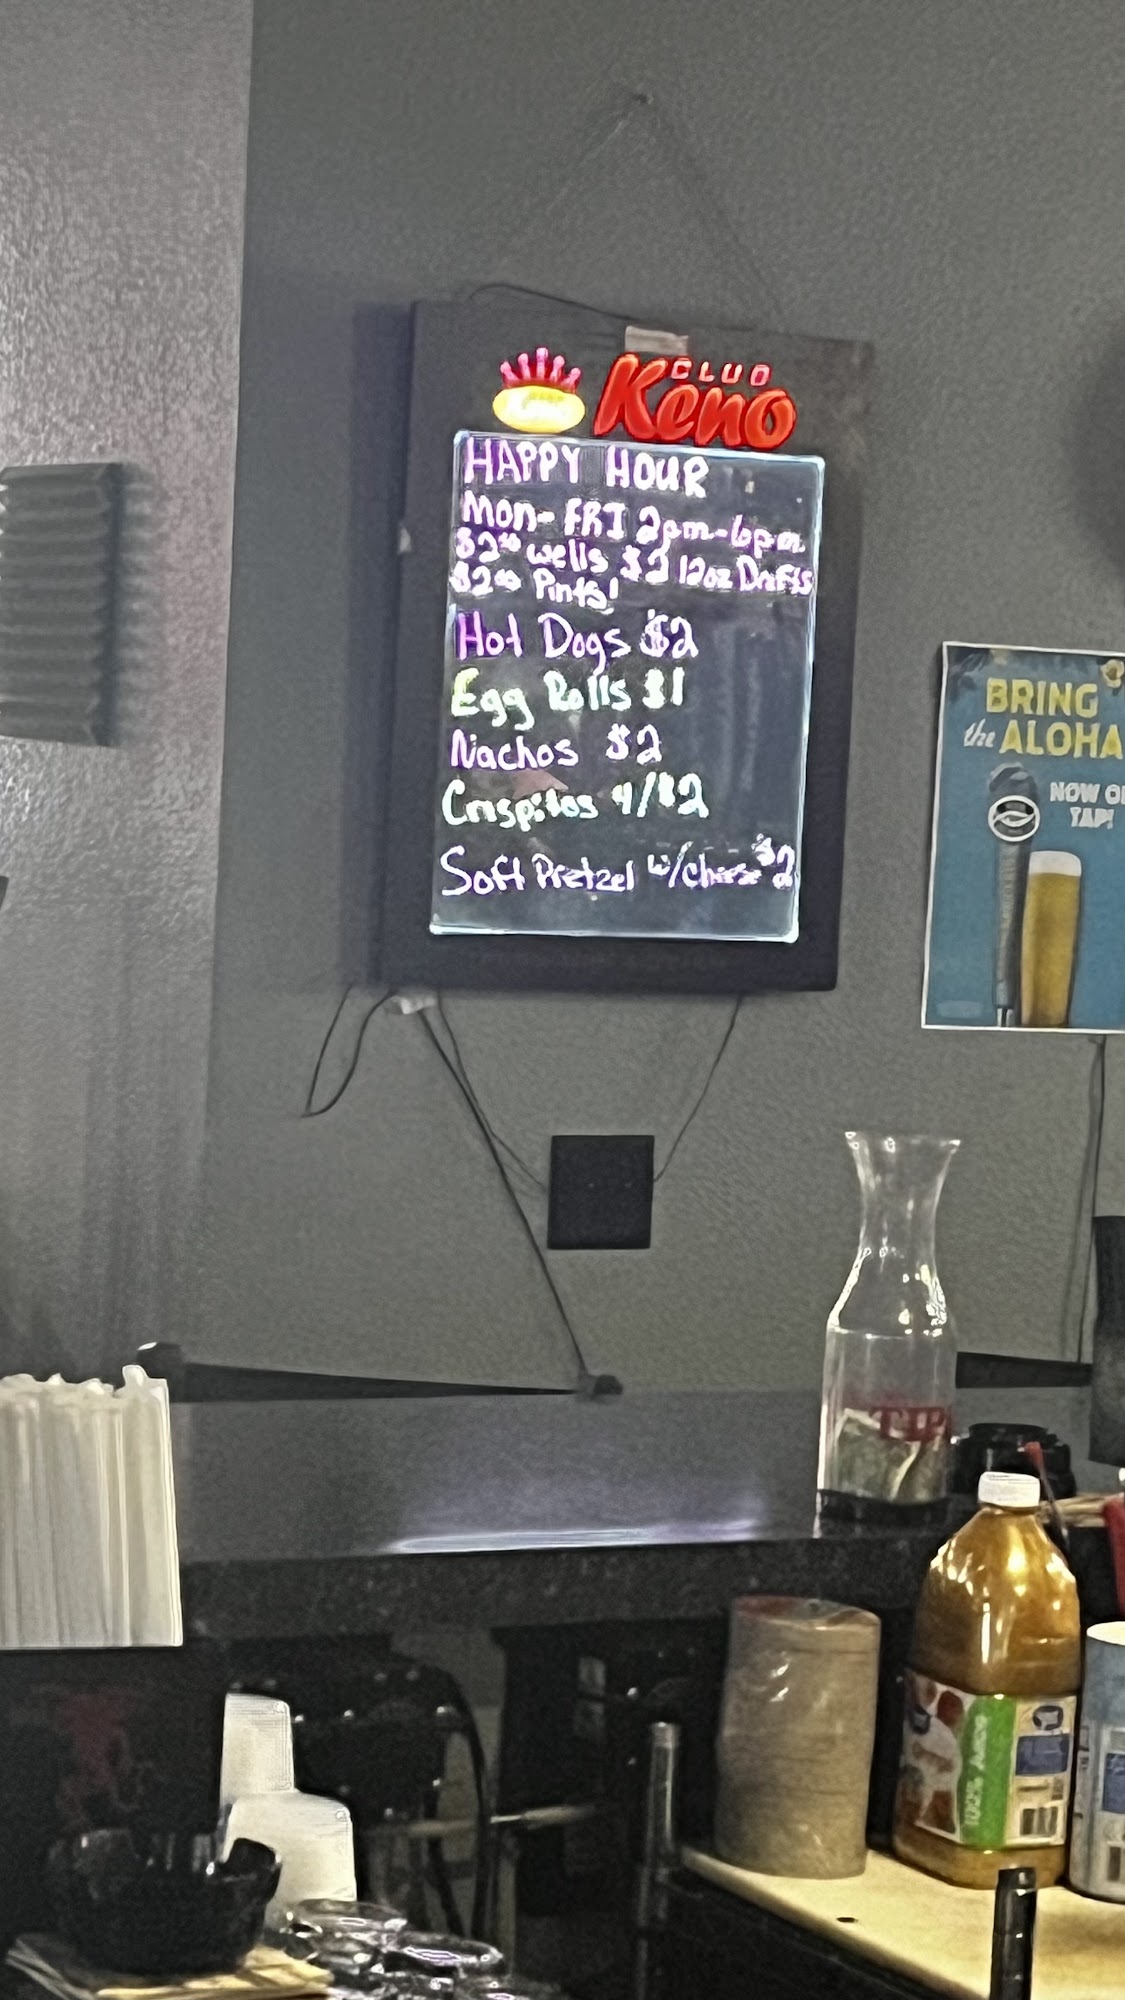 CLUB
Keno
HAPPY HOUR
Mon-FRI 2pm-6pm
wells $2 12oz Drafts
Pints!
Hot Dogs $2
Egg Rolls $1
Nachos $2
Crispitos 4/$2
Soft Pretzel w/cheese $2
BRING
the ALOHA
NOW O
TAP!
TIP
100% JUICE